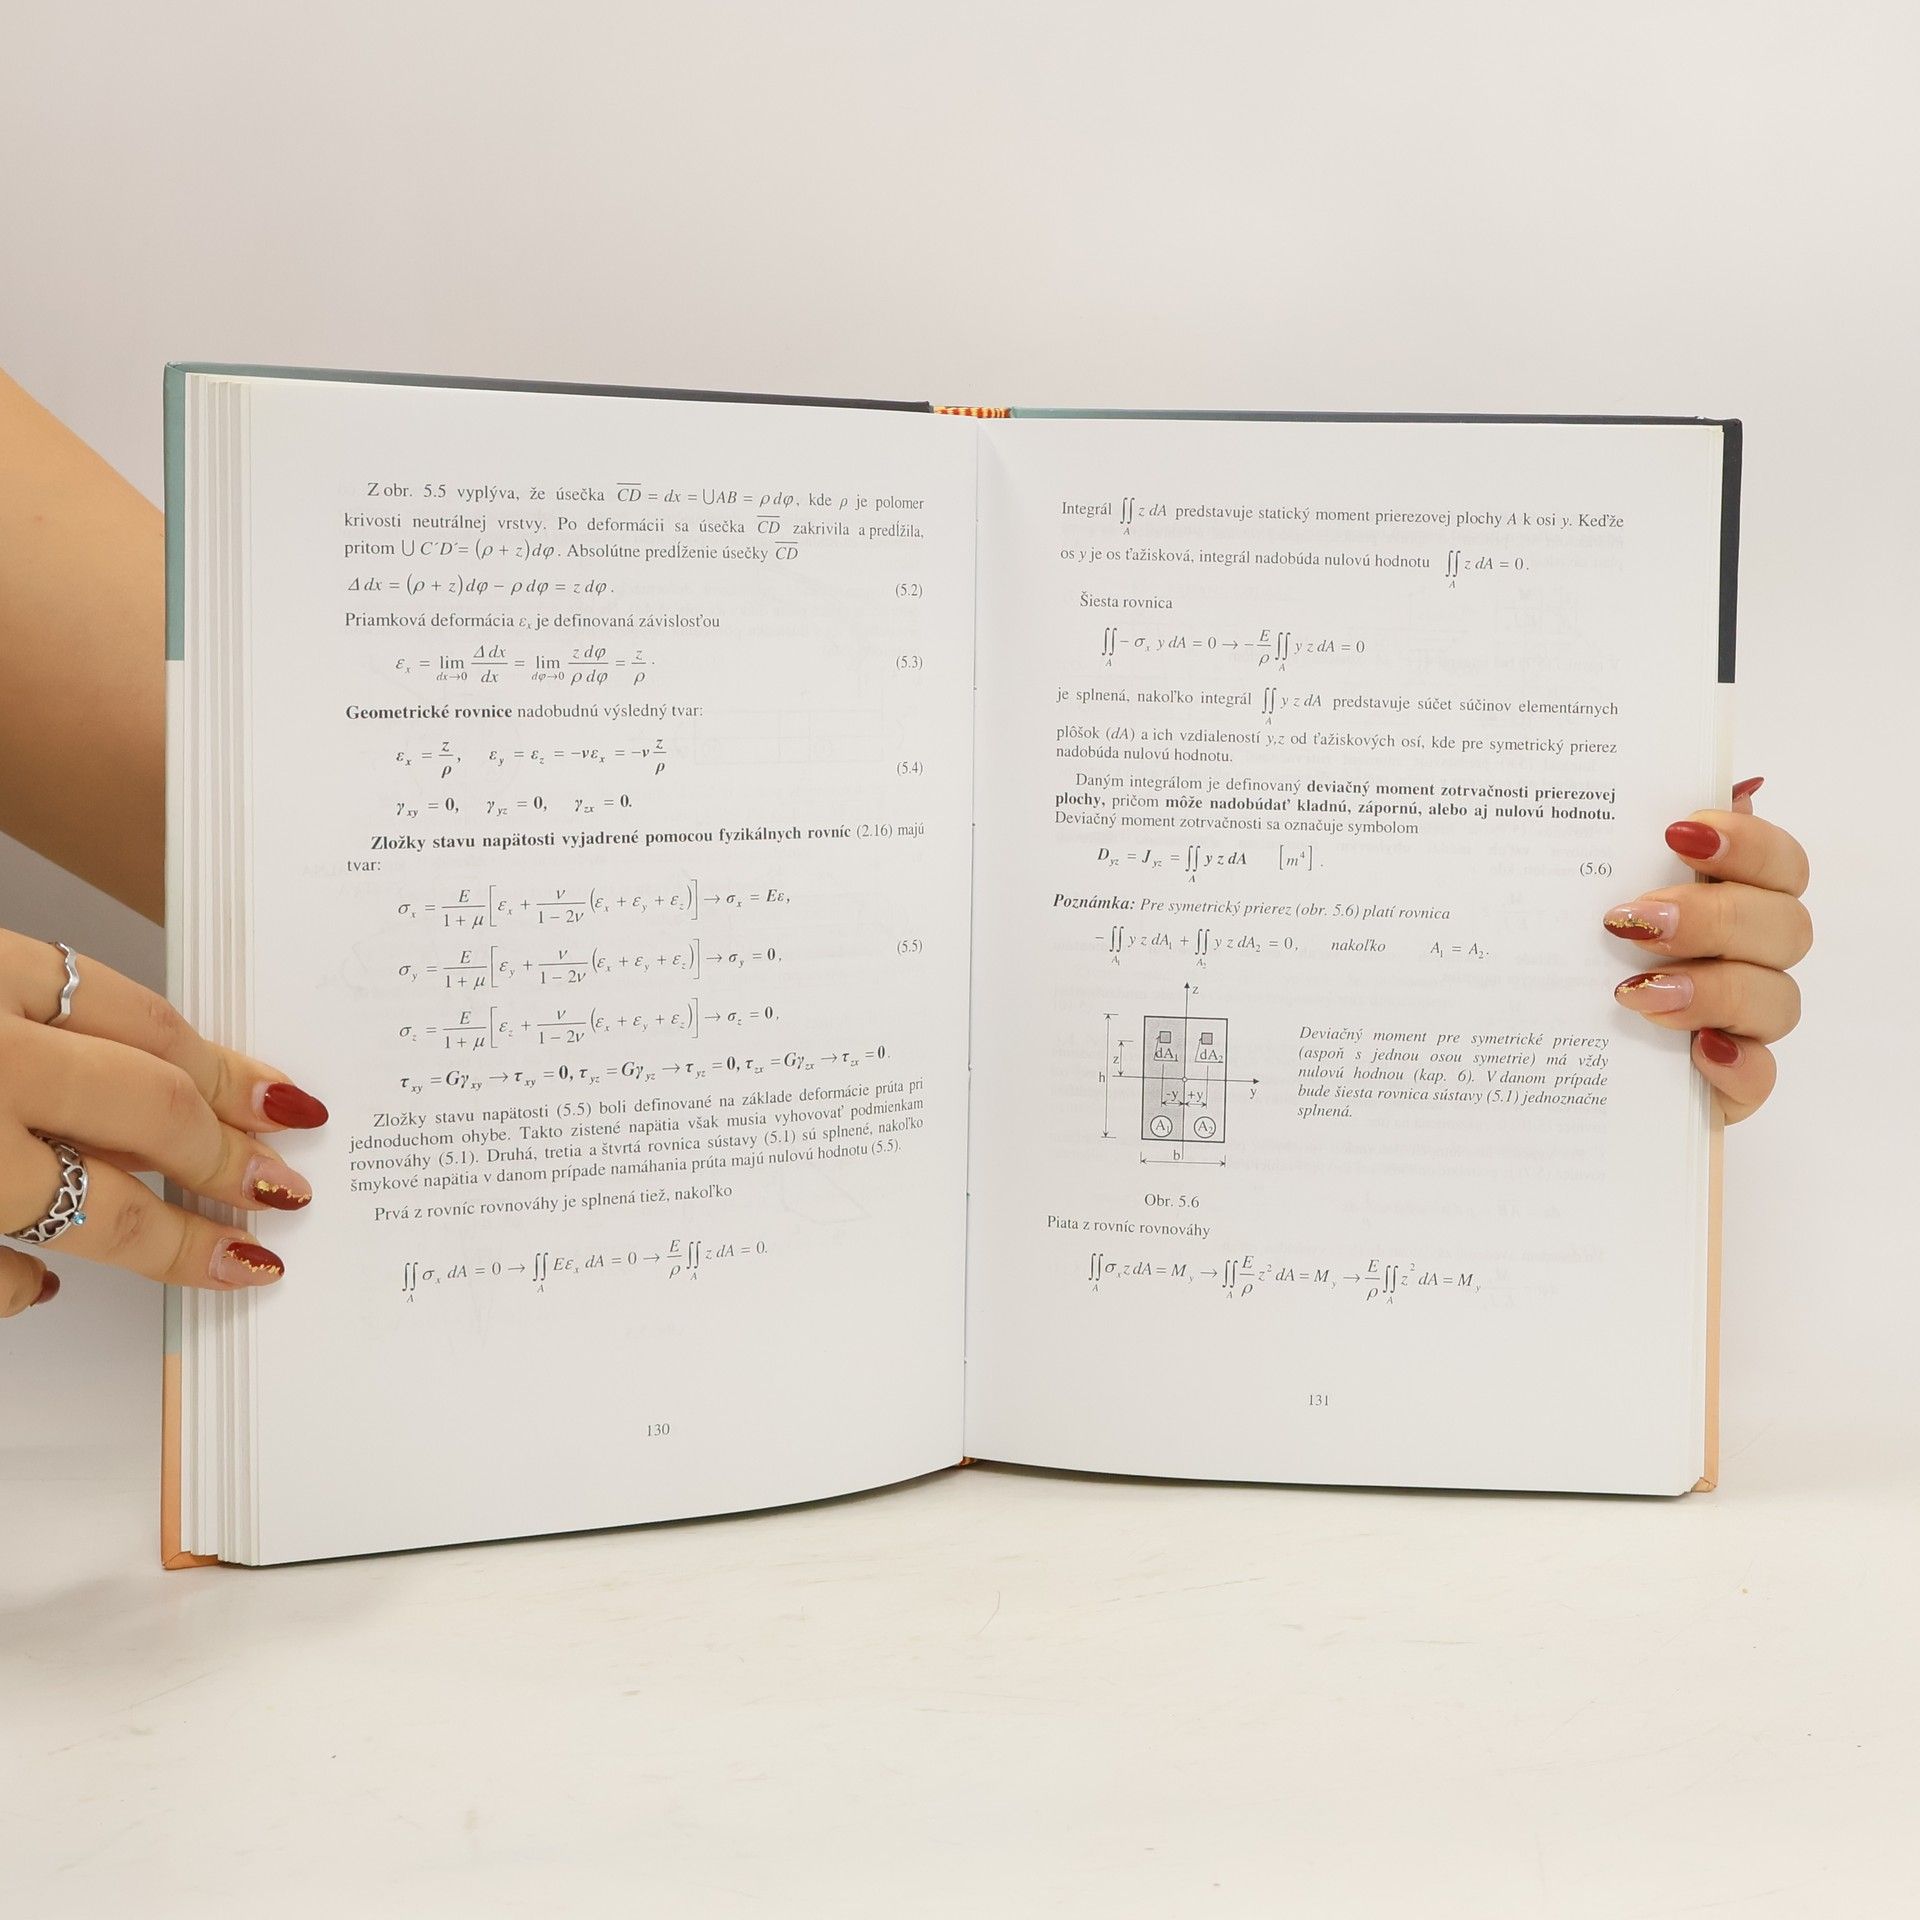 Z obr. 5.5 vyplýva, že úsečka CD = dx = ∪AB = ρ dφ, kde ρ je polomer
krivosti neutrálnej vrstvy. Po deformácii sa úsečka CD zakrivila a predĺžila,
pritom ∪ C´D´= (ρ + z)dφ. Absolútne predĺženie úsečky CD
Δ dx = (ρ + z)dφ − ρ dφ = z dφ. (5.2)
Priamková deformácia εx je definovaná závislosťou
εx = lim dx→0 Δ dx / dx = lim dφ→0 z dφ / ρ dφ = z / ρ. (5.3)
Geometrické rovnice nadobudnú výsledný tvar:
εx = z/ρ, εy = εz = −νεx = −ν z/ρ (5.4)
γxy = 0, γyz = 0, γzx = 0.
Zložky stavu napätosti vyjadrené pomocou fyzikálnych rovníc (2.16) majú
tvar:
σx = E/(1 + μ) [εx + ν/(1 − 2ν) (εx + εy + εz)] → σx = Eε,
σy = E/(1 + μ) [εy + ν/(1 − 2ν) (εx + εy + εz)] → σy = 0, (5.5)
σz = E/(1 + μ) [εz + ν/(1 − 2ν) (εx + εy + εz)] → σz = 0,
τxy = Gγxy → τxy = 0, τyz = Gγyz → τyz = 0, τzx = Gγzx → τzx = 0.
Zložky stavu napätosti (5.5) boli definované na základe deformácie prúta pri
jednoduchom ohybe. Takto zistené napätia však musia vyhovovať podmienkam
rovnováhy (5.1). Druhá, tretia a štvrtá rovnica sústavy (5.1) sú splnené, nakoľko
šmykové napätia v danom prípade namáhania prúta majú nulovú hodnotu (5.5).
Prvá z rovníc rovnováhy je splnená tiež, nakoľko
∬A σx dA = 0 → ∬A Eεx dA = 0 → E/ρ ∬A z dA = 0.
130
Integrál ∬A z dA predstavuje statický moment prierezovej plochy A k osi y. Keďže
os y je os ťažisková, integrál nadobúda nulovú hodnotu ∬A z dA = 0.
Šiesta rovnica
∬A − σx y dA = 0 → − E/ρ ∬A y z dA = 0
je splnená, nakoľko integrál ∬A y z dA predstavuje súčet súčinov elementárnych
plôšok (dA) a ich vzdialeností y,z od ťažiskových osí, kde pre symetrický prierez
nadobúda nulovú hodnotu.
Daným integrálom je definovaný deviačný moment zotrvačnosti prierezovej
plochy, pričom môže nadobúdať kladnú, zápornú, alebo aj nulovú hodnotu.
Deviačný moment zotrvačnosti sa označuje symbolom
Dyz = Jyz = ∬A y z dA [m⁴]. (5.6)
Poznámka: Pre symetrický prierez (obr. 5.6) platí rovnica
− ∬A₁ y z dA₁ + ∬A₂ y z dA₂ = 0, nakoľko A₁ = A₂.
z
dA₁ dA₂
z
h
y
-y +y
A₁ A₂
b
Deviačný moment pre symetrické prierezy
(aspoň s jednou osou symetrie) má vždy
nulovú hodnou (kap. 6). V danom prípade
bude šiesta rovnica sústavy (5.1) jednoznačne
splnená.
Obr. 5.6
Piata z rovníc rovnováhy
∬A σx z dA = My → ∬A E/ρ z² dA = My → E/ρ ∬A z² dA = My
131